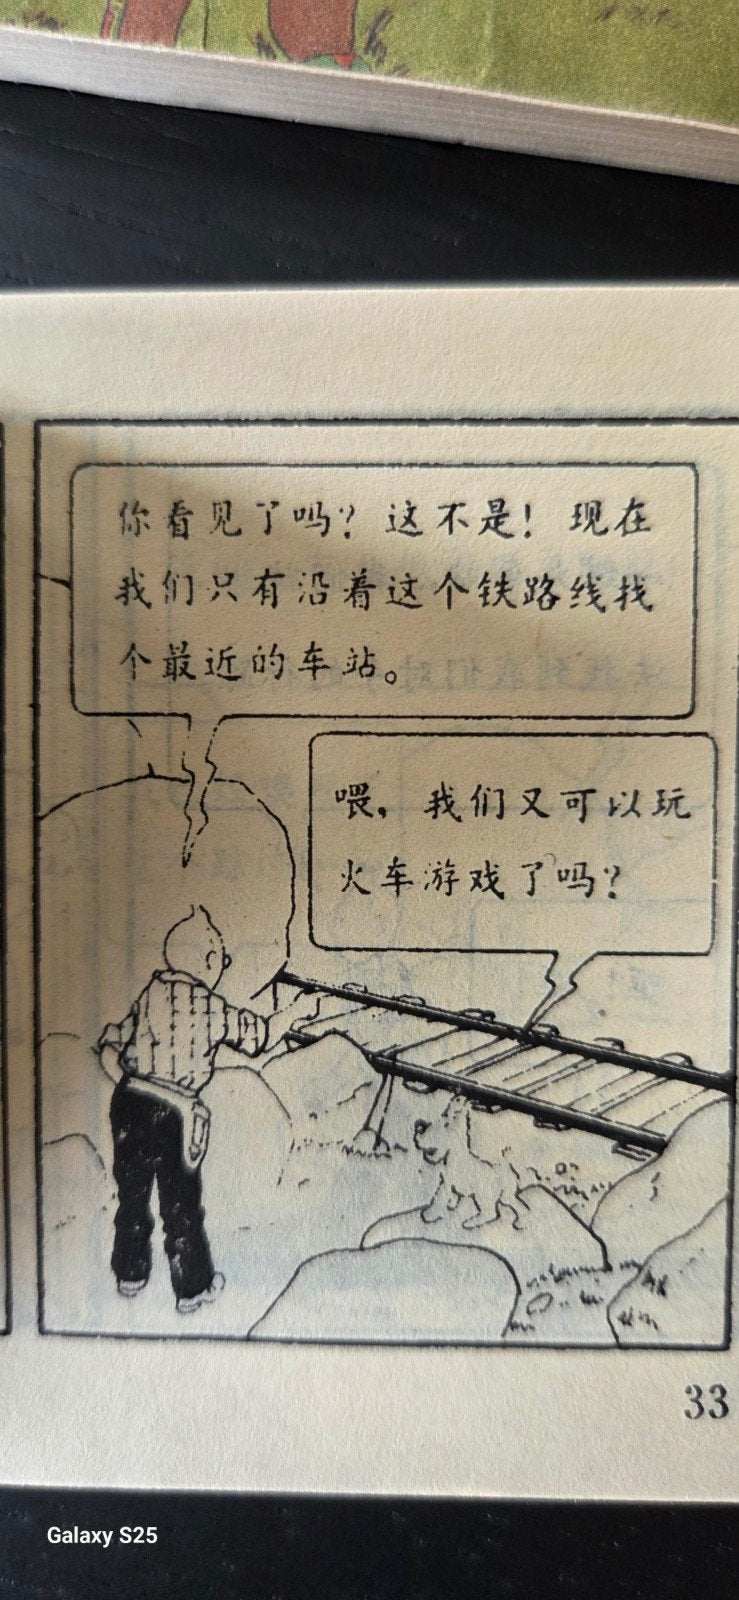 你看见了吗？这不是！现在
我们只有沿着这个铁路线找
个最近的车站。
喂，我们又可以玩
火车游戏了吗？
33
Galaxy S25